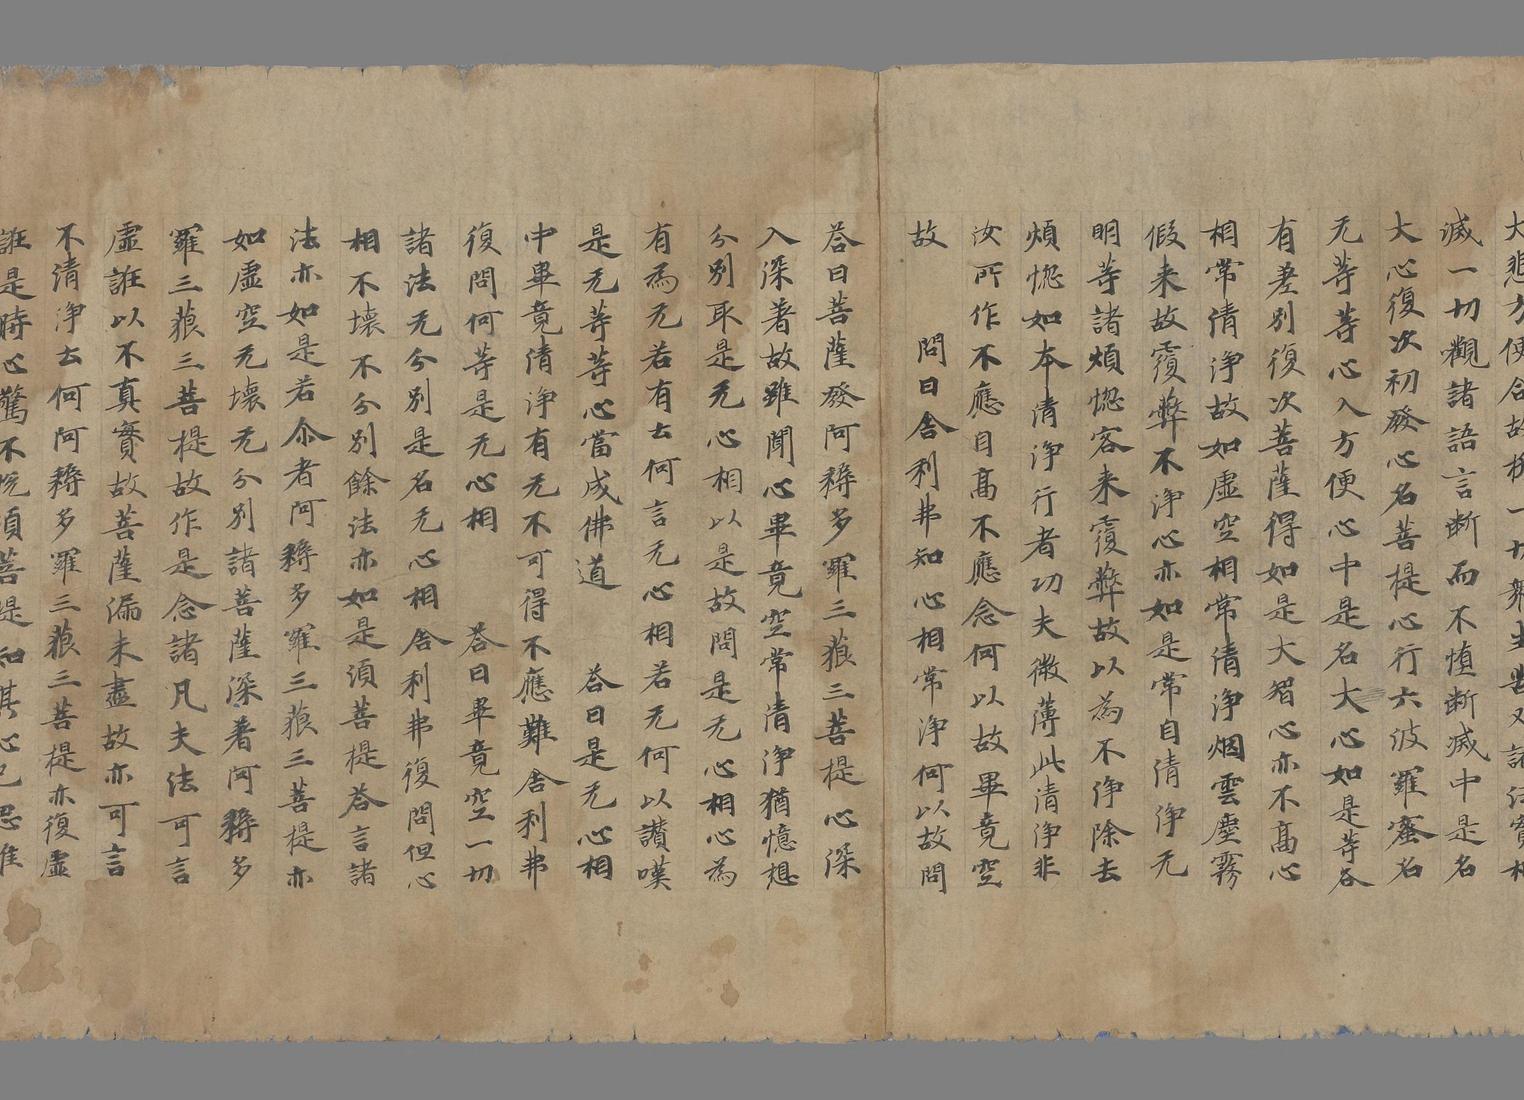 大悲方便合故拔一切衆生苦又諸法實相
滅一切觀諸語言断而不墮断滅中是名
大心復次初發心名菩提心行六波羅蜜名
无等等心入方便心中是名大心如是等各
有差别復次菩薩得如是大智心亦不高心
相常清浄故如虚空相常清浄烟雲塵霧
假来故覆弊不浄心亦如是常自清浄无
明等諸煩惚客来覆弊故以為不浄除去
煩惚如本清浄行者功夫微薄此清浄非
汝所作不應自高不應念何以故畢竟空
故　問曰舎利弗知心相常浄何以故問
荅曰菩薩發阿耨多羅三藐三菩提心深
入深著故雖聞心畢竟空常清浄猶憶想
分别取是无心相以是故問是无心相心為
有為无若有云何言无心相若无何以讃嘆
是无等等心當成佛道　荅曰是无心相
中畢竟清浄有无不可得不應難舎利弗
復問何等是无心相　荅曰畢竟空一切
諸法无分别是名无心相舎利弗復問但心
相不壞不分别餘法亦如是須菩提荅言諸
法亦如是若尒者阿耨多羅三藐三菩提亦
如虚空无壞无分别諸菩薩深著阿耨多
羅三藐三菩提故作是念諸凡夫法可言
虚誑以不真實故菩薩漏未盡故亦可言
不清浄云何阿耨多羅三藐三菩提亦復虚
誑是時心驚不恱須菩提知其心已思惟